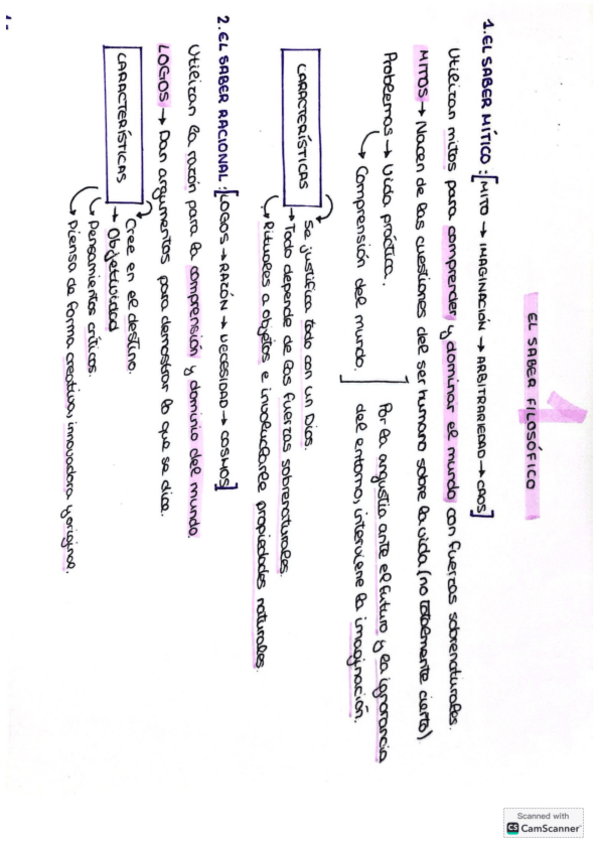 1
EL SABER FILOSÓFICO
1. EL SABER MÍTICO: [MITO → IMAGINACIÓN → ARBITRARIEDAD → CAOS]
Utilizan mitos para comprender y dominar el mundo con fuerzas sobrenaturales.
MITOS → Nacen de las cuestiones del ser humano sobre la vida (no totalmente cierto)
Problemas → Vida práctica.
→ Comprensión del mundo.
Por la angustia ante el futuro y la ignorancia
del entorno, interviene la imaginación.
CARACTERÍSTICAS
Se justifica todo con un Dios.
→ Todo depende de las fuerzas sobrenaturales.
Rituales a objetos e involucrarle propiedades naturales.
2. EL SABER RACIONAL: [LOGOS → RAZÓN → NECESIDAD → COSMOS]
Utilizan la razón para la comprensión y dominio del mundo
LOGOS → Dan argumentos para demostrar lo que se dice.
CARACTERÍSTICAS
Cree en el destino.
→ Objetividad
Pensamientos críticos.
Piensa de forma creativa, innovadora y original.
Scanned with
CS CamScanner